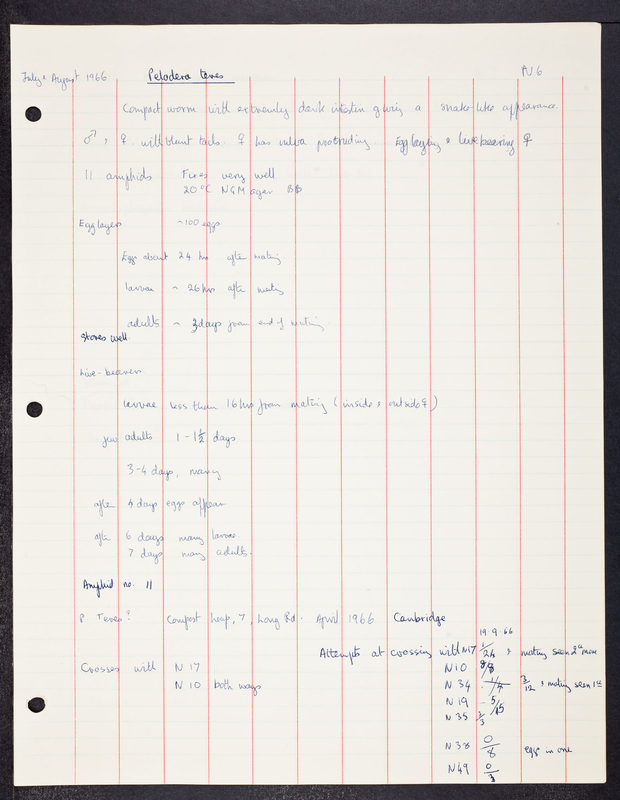 July & August 1966 Pelodera teres N6
Compact worm with extremely dark intestine giving a snake-like appearance.
♂, ♀ with blunt tails. ♀ has vulva protruding. Egg laying & live bearing ♀
11 amphids Fixes very well
20°C NGM agar BB
Egg layers ~100 eggs
Eggs about 24 hrs after mating
larvae ~ 26 hrs after mating
adults ~ 3 days from end of mating
Stores well
Live-bearers
larvae less than 16 hrs from mating (inside & outside ♀)
few adults 1-1½ days
3-4 days, many
after 4 days eggs appear
after 6 days many larvae
7 days many adults.
Amphid no. 11
P Teres? Compost heap, 7, Long Rd. April 1966 Cambridge
19.9.66
Attempts at crossing with N17 1/24 & mating seen
Crosses with N 17
N10 8/8
N 10 both ways
N 34 3/12 & mating seen
N19 5/15
N 35 3/3
N38 0/8 eggs in one
N49 0/3